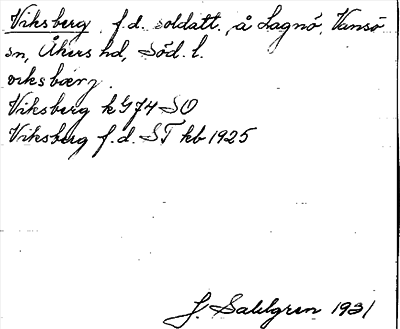 Viksberg f.d. soldatt. å Lagnö, Vansö
sn, Åkers hd, Söd. l.
viksbærj.
Viksberg k G74 SO
Viksberg f.d. ST kb 1925
J. Sahlgren 1931